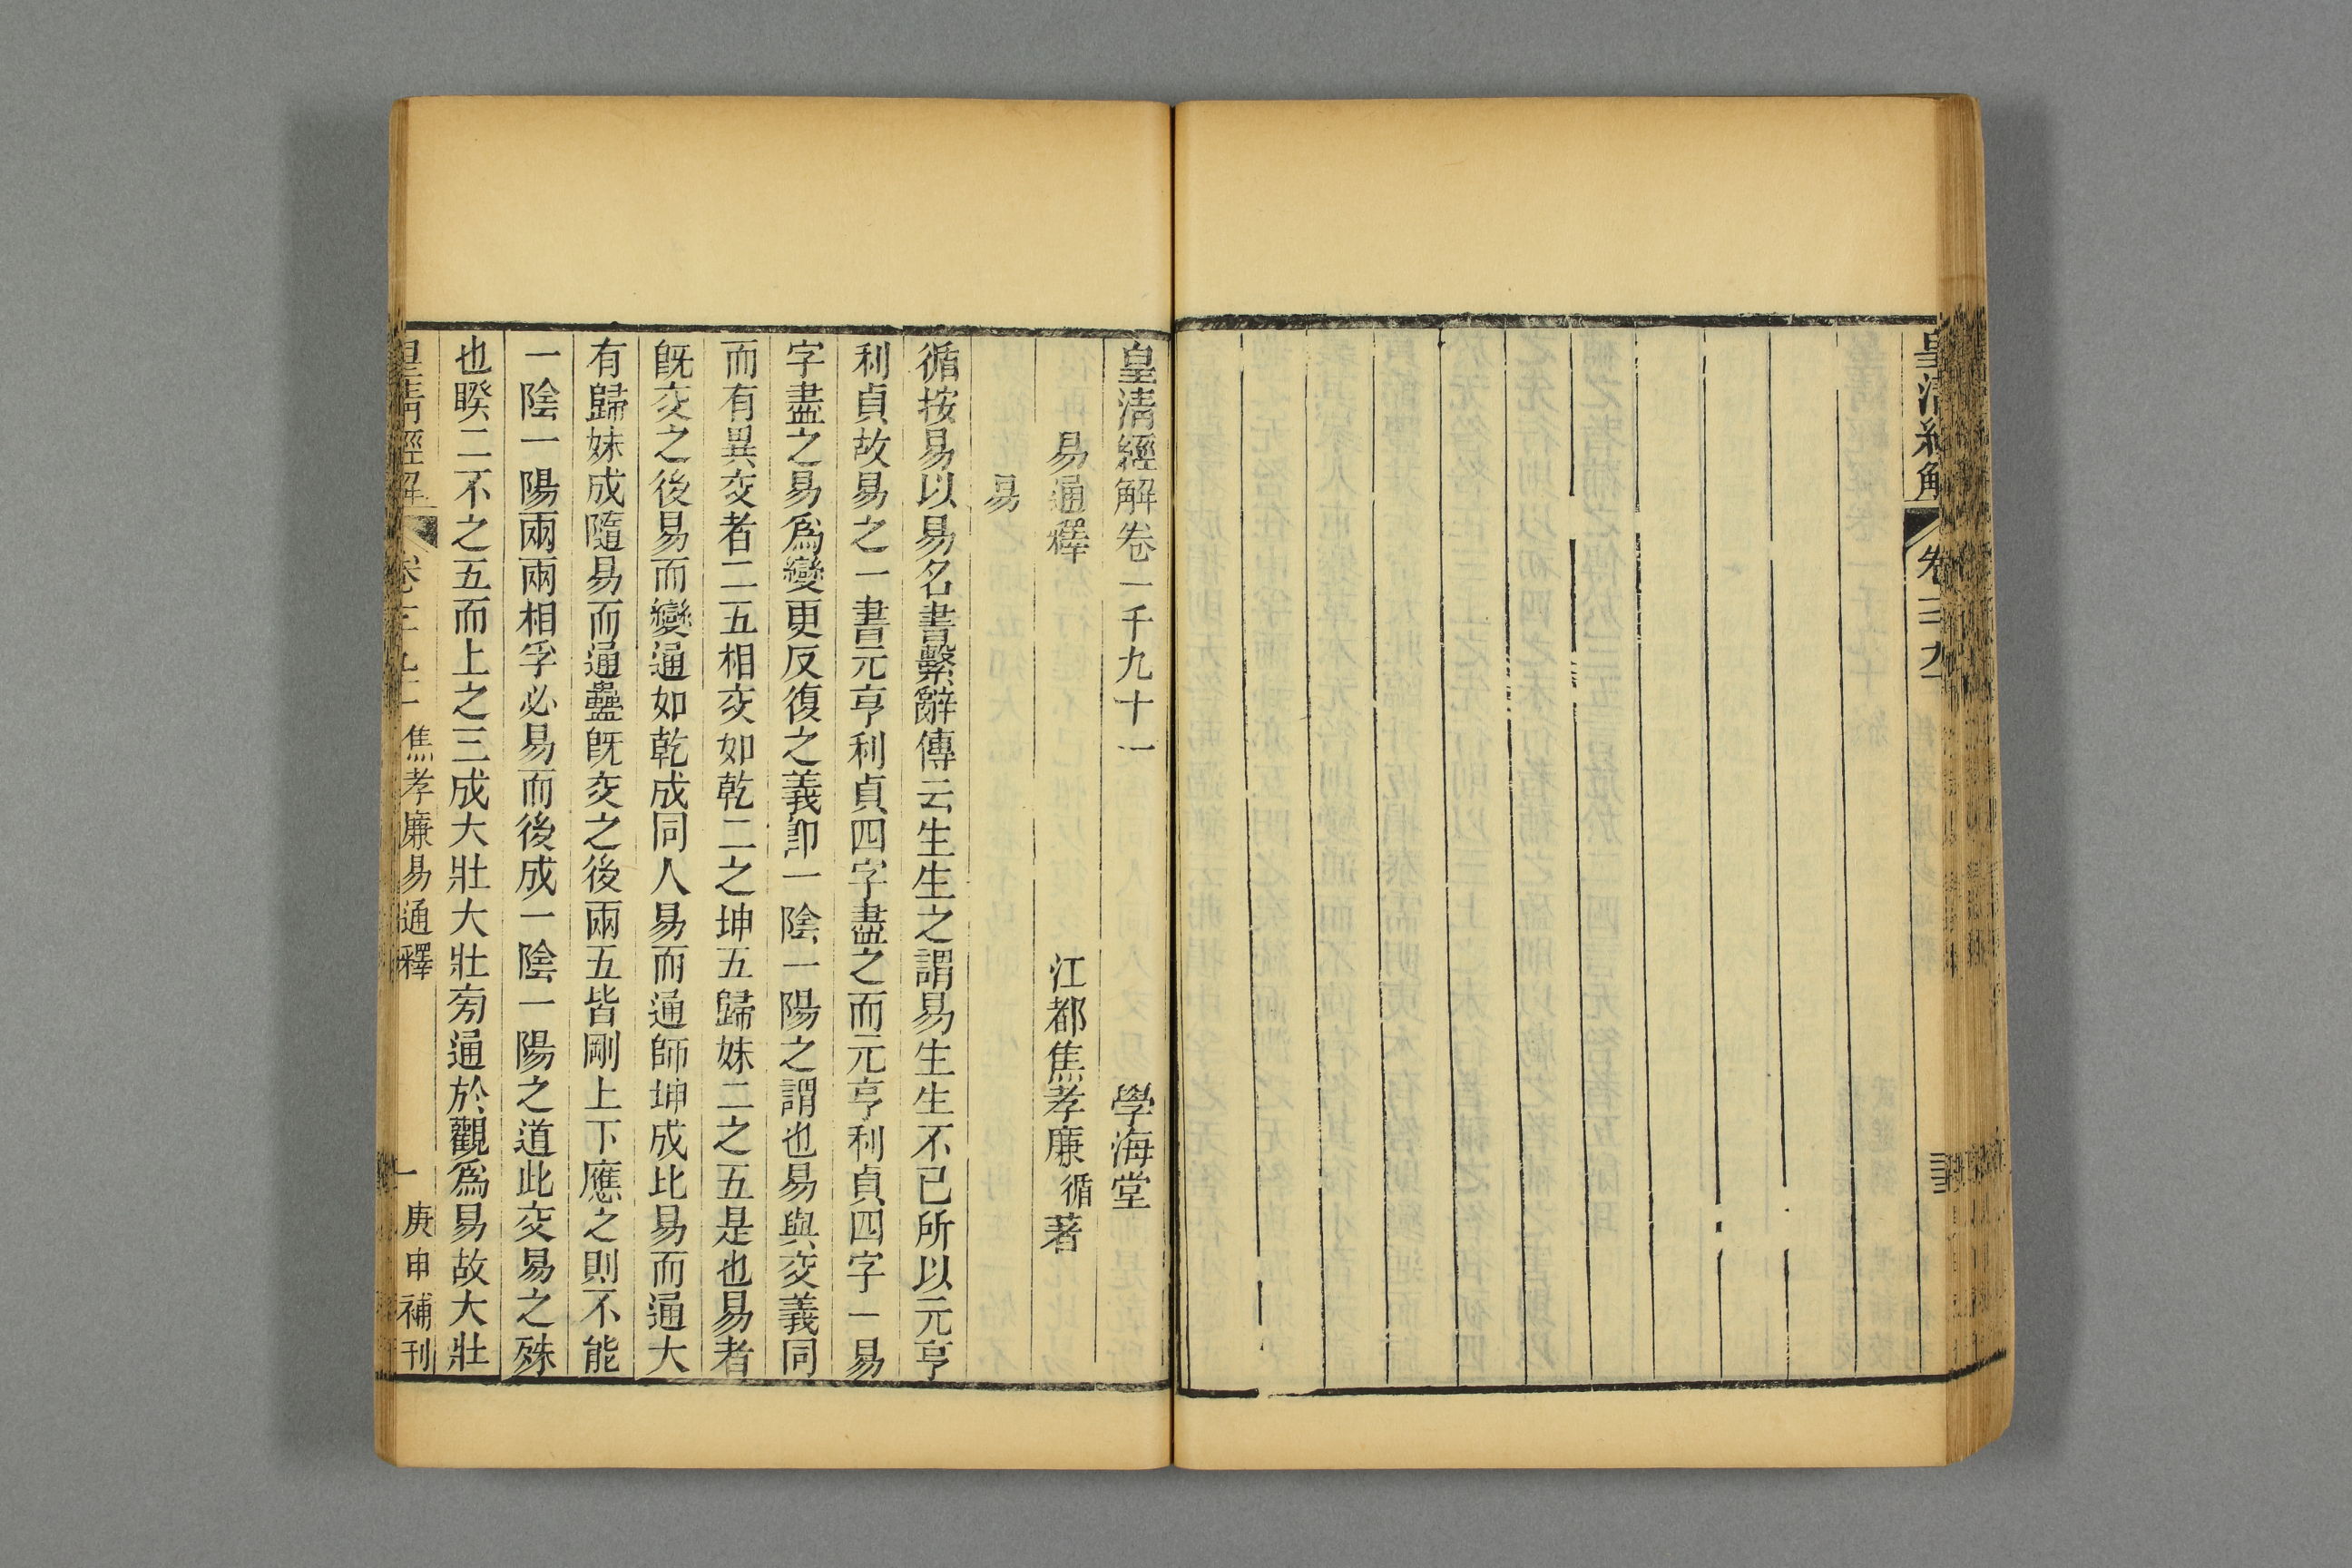 皇清經解
皇清經解卷一千九十一 學海堂
易通釋 江都焦孝廉循著
易
循按易以易名書繫辭傳云生生之謂易生生不已所以元亨
利貞故易之一書元亨利貞四字盡之而元亨利貞四字一易
字盡之易爲變更反復之義卽一陰一陽之謂也易與交義同
而有異交者二五相交如乾二之坤五歸妹二之五是也易者
旣交之後易而變通如乾成同人易而通師坤成比易而通大
有歸妹成隨易而通蠱旣交之後兩五皆剛上下應之則不能
一陰一陽兩兩相孚必易而後成一陰一陽之道此交易之殊
也睽二不之五而上之三成大壯大壯旁通於觀爲易故大壯
皇清經解 焦孝廉易通釋 一 庚申補刊